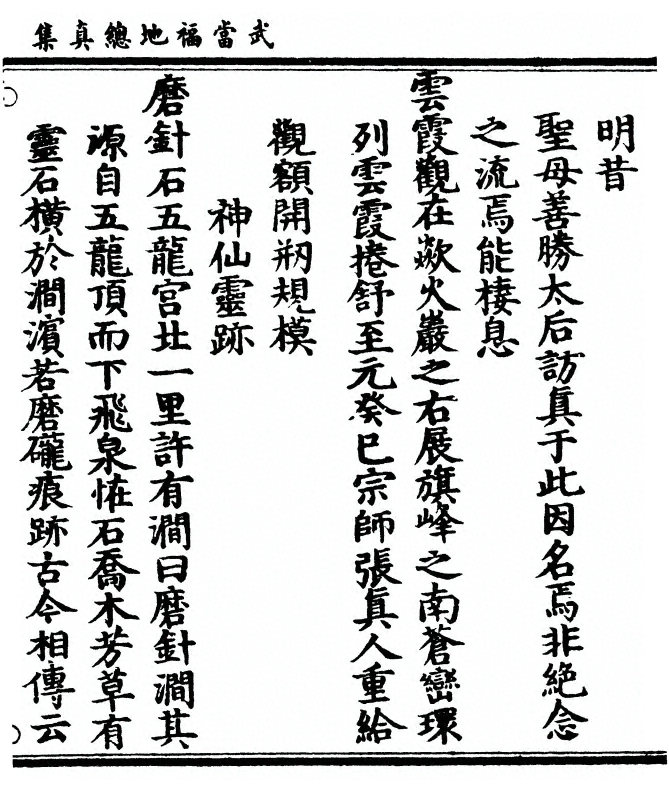 武當福地總真集
明昔
聖母善勝太后訪真于此因名焉非絶念
之流焉能棲息
雲霞觀在焱火巖之右展旗峰之南蒼巒環
列雲霞捲舒至元癸巳宗師張真人重給
觀額開剏規模
神仙靈跡
磨針石五龍宮北一里許有澗曰磨針澗其
源自五龍頂而下飛泉恠石喬木芳草有
靈石橫於澗濱若磨礲痕跡古今相傳云